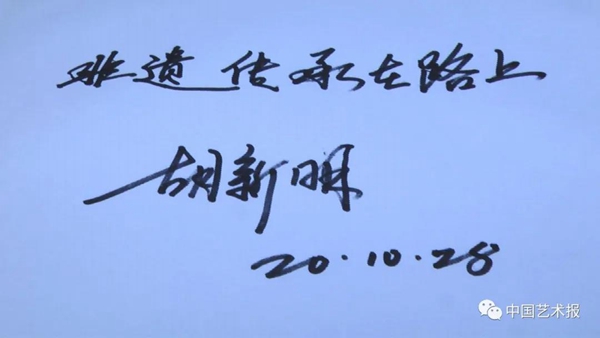 非遗传承在路上
胡新明
20.10.28
中国艺术报